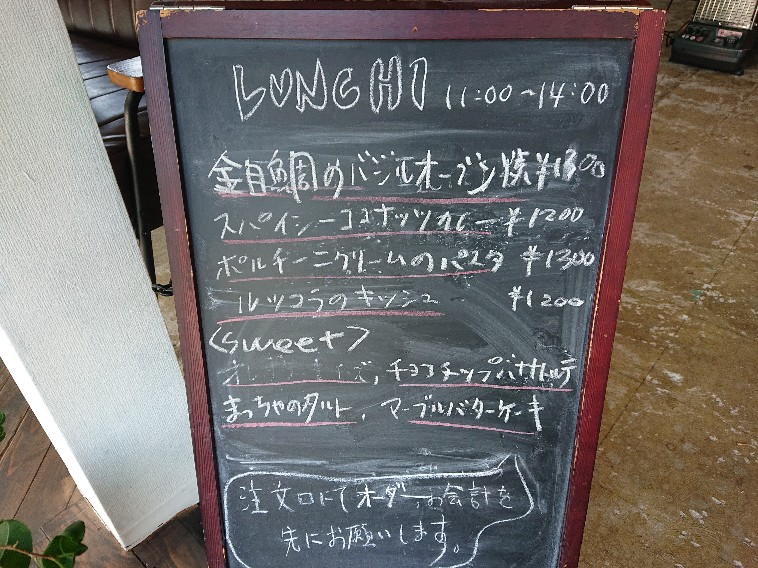 LUNCH! 11:00~14:00
金目鯛のバジルオーブン焼 ¥1300
スパイシーココナッツカレー ¥1200
ポルチーニクリームのパスタ ¥1300
ルッコラのキッシュ ¥1200
<sweet>
チョコチップバナナトルテ
まっちゃのタルト、マーブルバターケーキ
注文口にてオーダー、お会計を
先にお願いします。